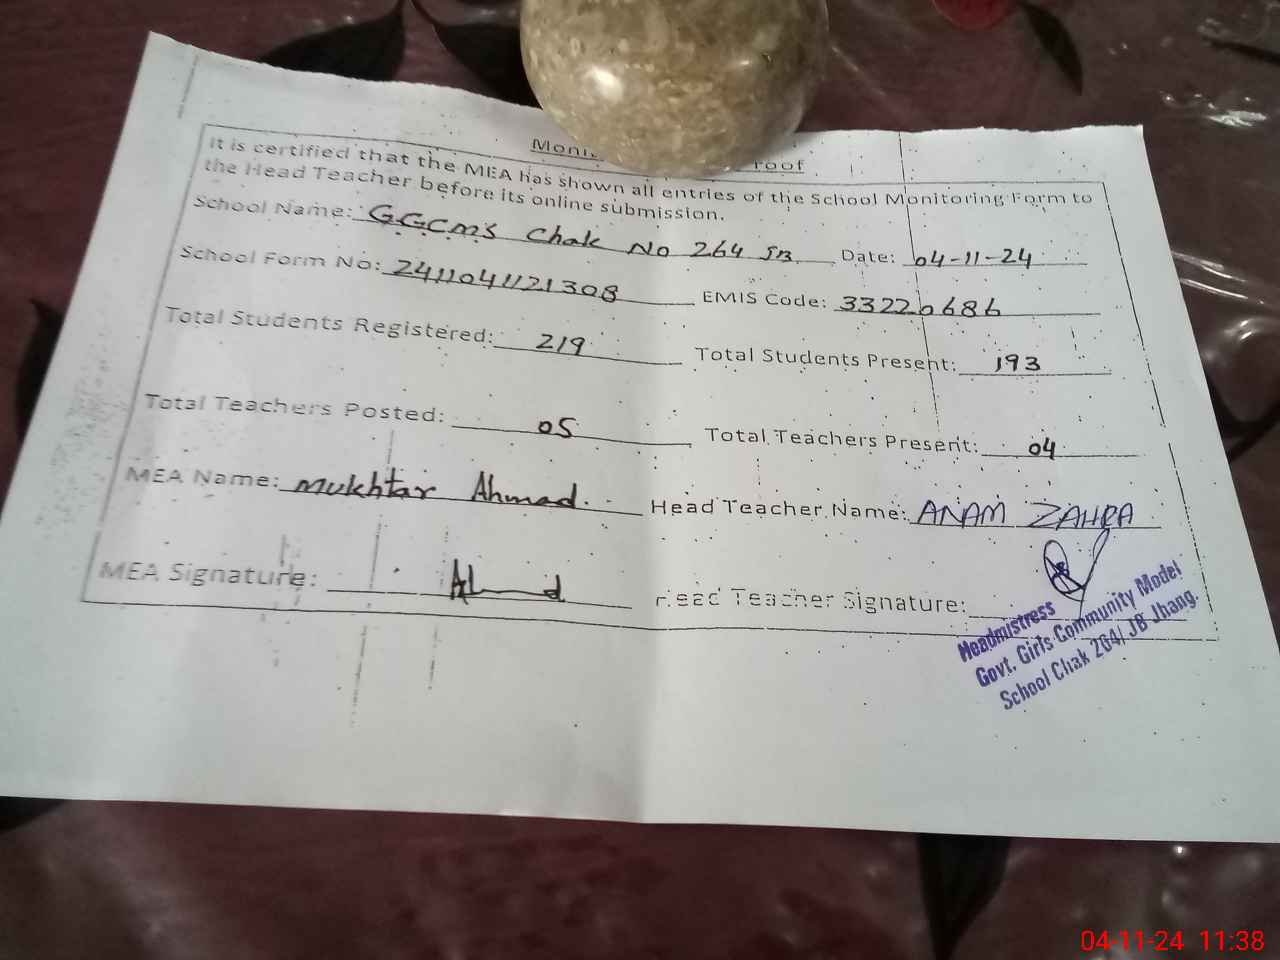 It is certified that the MEA has shown all entries of the School Monitoring Form to
the Head Teacher before its online submission.
School Name: GGCMS Chak No 264 JB Date: 04-11-24
School Form No: 2411041121308 EMIS Code: 33220686
Total Students Registered: 219 Total Students Present: 193
Total Teachers Posted: 05 Total Teachers Present: 04
MEA Name: Mukhtar Ahmad. Head Teacher Name: ANAM ZAHRA
MEA Signature: Ahmad Head Teacher Signature:
Headmistress
Govt. Girls Community Model
School Chak 264/ JB Jhang.
04-11-24 11:38